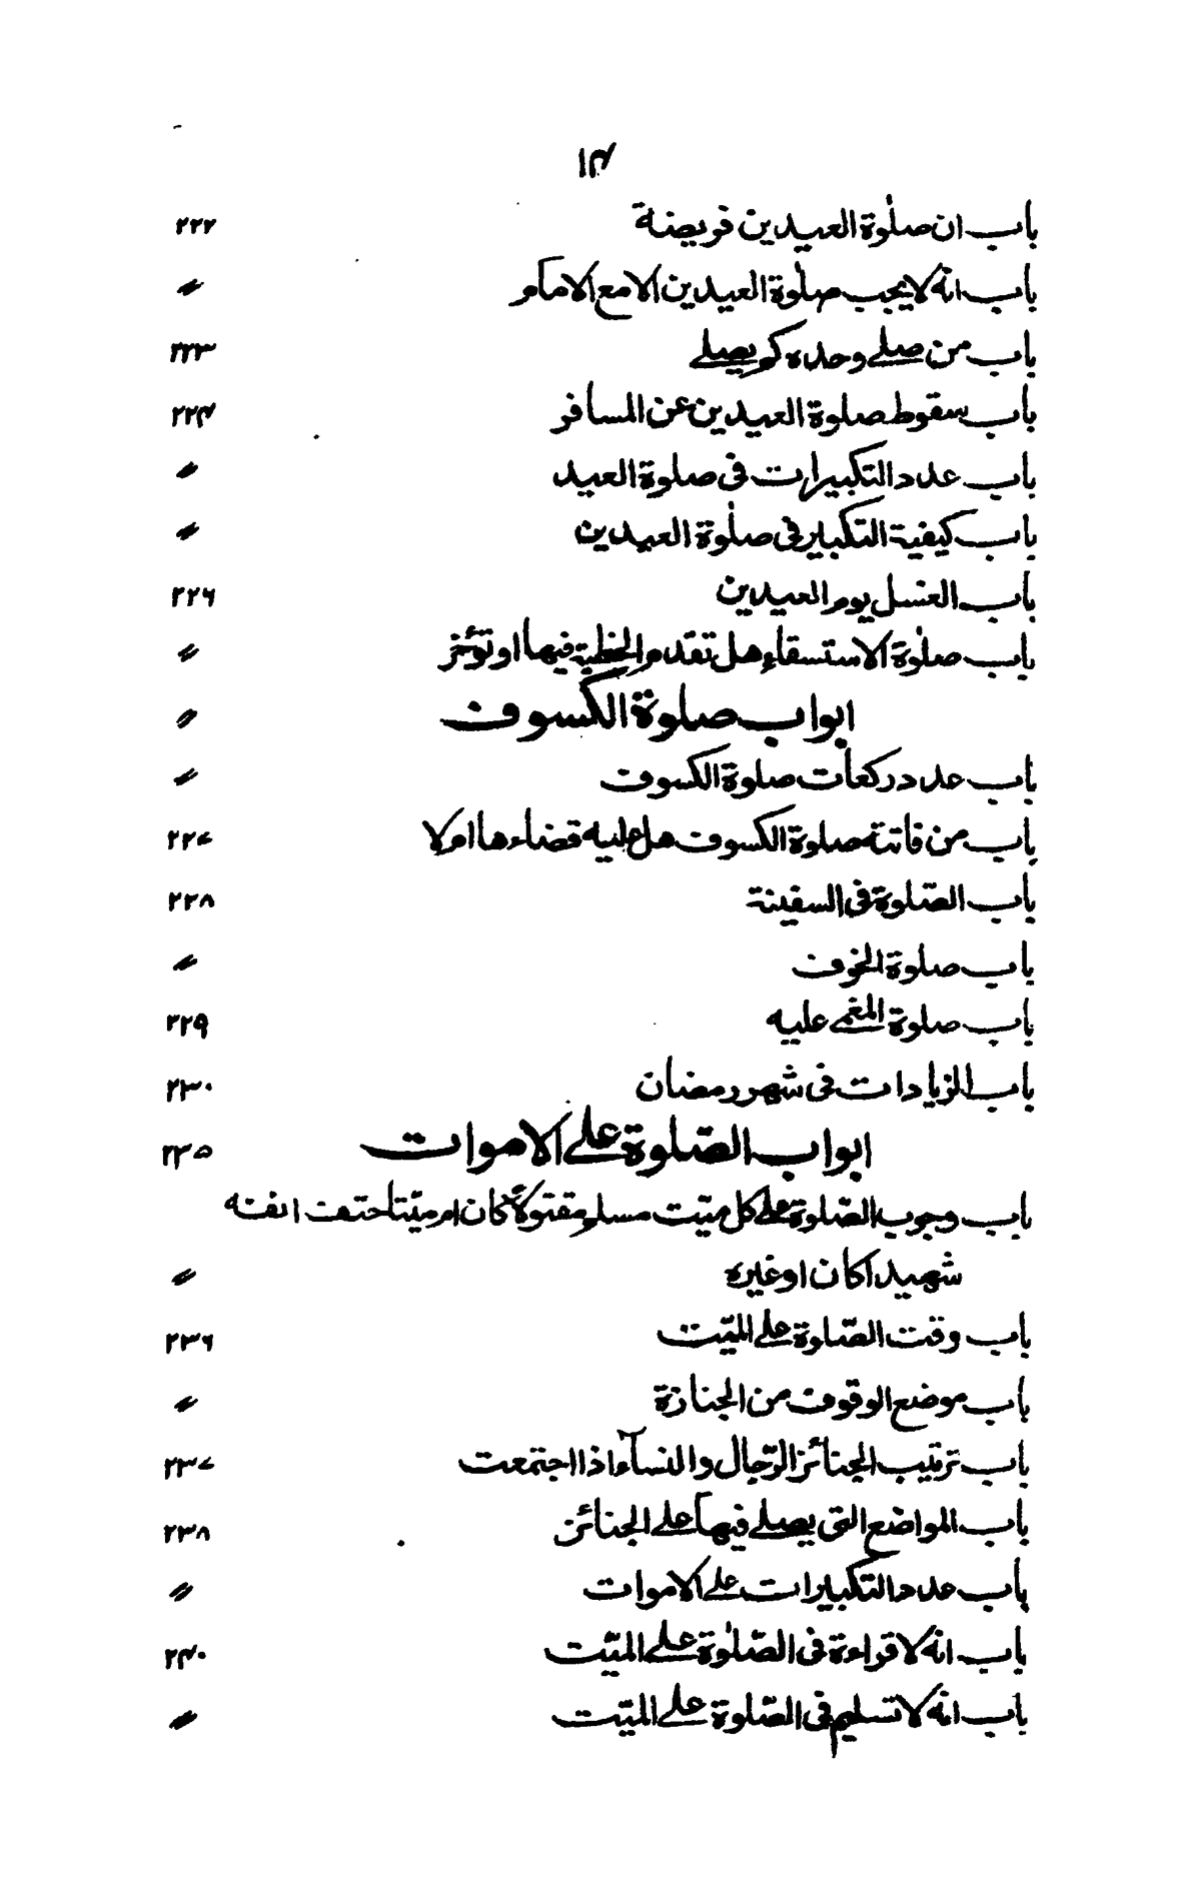 ۱۴
باب ان صلٰوة العيدين فريضة ۲۲۲
باب انه لا يجب صلٰوة العيدين الا مع الامام 〃
باب من صلے وحده كم يصلے ۲۲۳
باب سقوط صلوة العيدين عن المسافر ۲۲۴
باب عدد التكبيرات فى صلوة العيد 〃
باب كيفية التكبير فى صلٰوة العيدين 〃
باب الغسل يوم العيدين ۲۲۶
باب صلٰوة الاستسقاء هل تقدم الخطبة فيها او تؤخر 〃
ابواب صلوة الكسوف 〃
باب عدد ركعات صلوة الكسوف 〃
باب من فاتته صلوة الكسوف هل عليه قضاءها ام لا ۲۲۷
باب الصّلوة فى السفينة ۲۲۸
باب صلوة الخوف 〃
باب صلوة المغمے عليه ۲۲۹
باب الزيادات فى شهر رمضان ۲۳۰
ابواب الصّلوة علے الاموات ۲۳۵
باب وجوب الصّلوة علے كل ميّت مسلم مقتولًا كان ام ميّتا حتف انفه
شهيدا كان او غيره 〃
باب وقت الصّلوة علے الميّت ۲۳۶
باب موضع الوقوف من الجنازة 〃
باب ترتيب الجنائز الرّجال والنسآء اذا اجتمعت ۲۳۷
باب المواضع التى يصلے فيها علے الجنائز ۲۳۸
باب عدد التكبيرات علے الاموات 〃
باب انه لا قراءة فى الصّلٰوة علے الميّت ۲۴۰
باب انه لا تسليم فى الصّلوة علے الميّت 〃